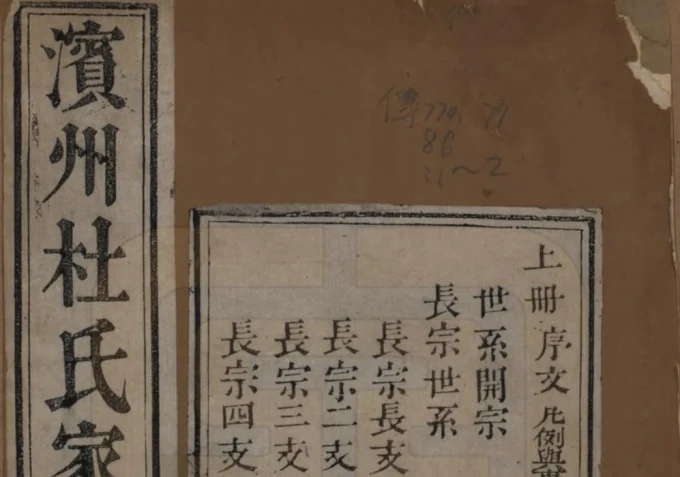 濱州杜氏家
上冊序文 凡例與
世系開宗
長宗世系
長宗長支
長宗二支
長宗三支
長宗四支
傳
86
~2